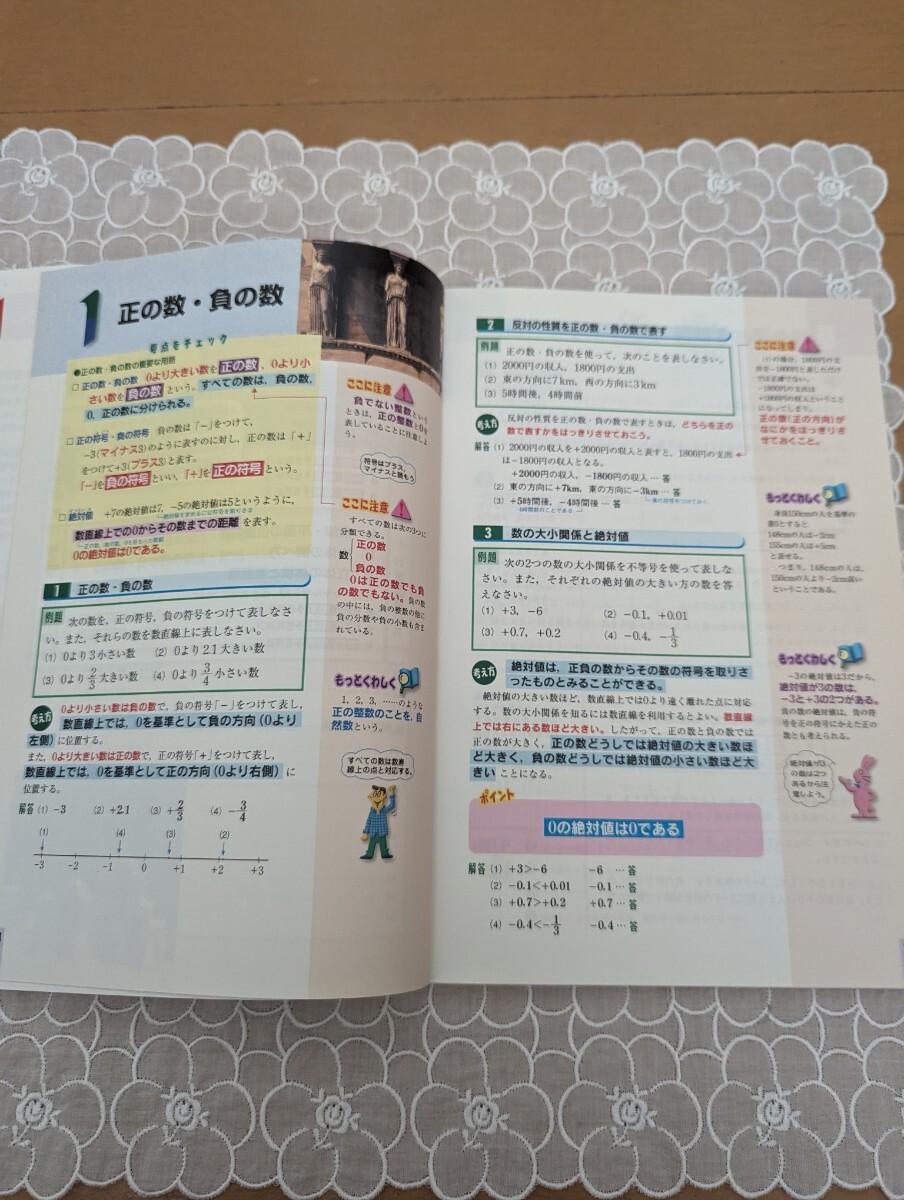 1 正の数・負の数
要点をチェック
●正の数・負の数の重要な用語
□ 正の数・負の数 0より大きい数を正の数、0より小
さい数を負の数という。すべての数は、負の数、
0、正の数に分けられる。
□ 正の符号・負の符号 負の数は「−」をつけて、
−3(マイナス3)のように表すのに対し、正の数は「+」
をつけて+3(プラス3)と表す。
「−」を負の符号といい、「+」を正の符号という。
□ 絶対値 +7の絶対値は7、−5の絶対値は5というように、
数直線上での0からその数までの距離を表す。
0の絶対値は0である。
ここに注意
負でない整数という
ときは、正の整数と0を
表していることに注意しよ
う。
符号はプラス、
マイナスと読もう
ここに注意
すべての数は次の3つに
分類できる。
数
正の数
0
負の数
0は正の数でも負
の数でもない。負の数
の中には、負の整数の他に
負の分数や負の小数も含ま
れている。
1 正の数・負の数
例題 次の数を、正の符号、負の符号をつけて表しなさ
い。また、それらの数を数直線上に表しなさい。
(1) 0より3小さい数 (2) 0より2.1大きい数
(3) 0より2/3大きい数 (4) 0より3/4小さい数
考え方 0より小さい数は負の数で、負の符号「−」をつけて表し、
数直線上では、0を基準として負の方向(0より
左側)に位置する。
また、0より大きい数は正の数で、正の符号「+」をつけて表し、
数直線上では、0を基準として正の方向(0より右側)に
位置する。
解答 (1) −3 (2) +2.1 (3) +2/3 (4) −3/4
(1) (4) (3) (2)
−3 −2 −1 0 +1 +2 +3
もっとくわしく
1, 2, 3, ……のような
正の整数のことを、自
然数という。
すべての数は数直
線上の点と対応する。
2 反対の性質を正の数・負の数で表す
例題 正の数・負の数を使って、次のことを表しなさい。
(1) 2000円の収入、1800円の支出
(2) 東の方向に7km、西の方向に3km
(3) 5時間後、4時間前
考え方 反対の性質を正の数・負の数で表すときは、どちらを正の
数で表すかをはっきりさせておこう。
解答 (1) 2000円の収入を+2000円の収入と表すと、1800円の支出
は−1800円の収入となる。
+2000円の収入、−1800円の収入 … 答
(2) 東の方向に+7km、東の方向に−3km … 答
(3) +5時間後、−4時間後 … 答
4時間前のことである
ここに注意
(1)の場合、1800円の支
出を−1800円と表しただけ
では正確でない。
−1800円の支出は
+1800円の収入ということ
になってしまう。
正の数(正の方向)が
なにかをはっきりさ
せておくこと。
もっとくわしく
身長150cmの人を基準の
数0とすると
148cmの人は−2cm
155cmの人は+5cm
と表せる。
つまり、148cmの人は、
150cmの人より−2cm高い
ということである。
3 数の大小関係と絶対値
例題 次の2つの数の大小関係を不等号を使って表しな
さい。また、それぞれの絶対値の大きい方の数を答
えなさい。
(1) +3, −6 (2) −0.1, +0.01
(3) +0.7, +0.2 (4) −0.4, −1/3
考え方 絶対値は、正負の数からその数の符号を取りさ
ったものとみることができる。
絶対値の大きい数ほど、数直線上では0より遠く離れた点に対応
する。数の大小関係を知るには数直線を利用するとよい。数直線
上では右にある数ほど大きい。したがって、正の数と負の数では
正の数が大きく、正の数どうしでは絶対値の大きい数ほ
ど大きく、負の数どうしでは絶対値の小さい数ほど大
きいことになる。
ポイント
0の絶対値は0である
解答 (1) +3>−6 −6 … 答
(2) −0.1<+0.01 −0.1 … 答
(3) +0.7>+0.2 +0.7 … 答
(4) −0.4<−1/3 −0.4 … 答
もっとくわしく
−3の絶対値は3だから、
絶対値が3の数は、
−3と+3の2つがある。
負の数の絶対値は、負の符
号を正の符号にかえた正の
数とも考えられる。
絶対値が3
の数は2つ
あるから注
意しよう。